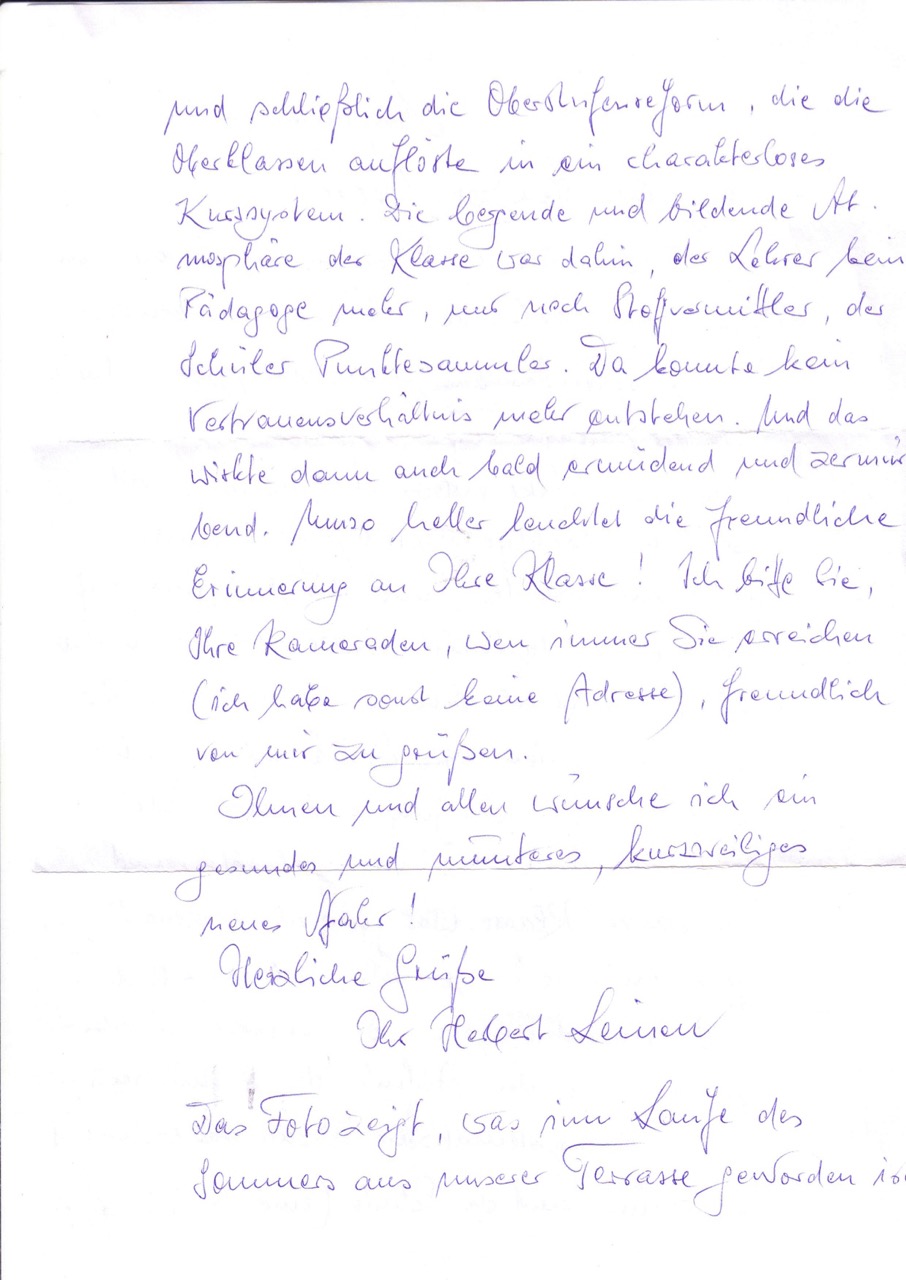 und schließlich die Oberstufenreform, die die
Oberklassen auflöste in ein charakterloses
Kurssystem. Die hegende und bildende At-
mosphäre der Klasse war dahin, der Lehrer kein
Pädagoge mehr, nur noch Stoffvermittler, der
Schüler Punktesammler. Da konnte kein
Vertrauensverhältnis mehr entstehen. Und das
wirkte dann auch bald ermüdend und zermür
bend. Umso heller leuchtet die freundliche
Erinnerung an Ihre Klasse! Ich bitte Sie,
Ihre Kameraden, wen immer Sie erreichen
(ich habe sonst keine Adresse), freundlich
von mir zu grüßen.
Ihnen und allen wünsche ich ein
gesundes und munteres, kurzweiliges
neues Jahr!
Herzliche Grüße
Ihr Herbert Leinen
Das Foto zeigt, was im Laufe des
Sommers aus unserer Terrasse geworden is